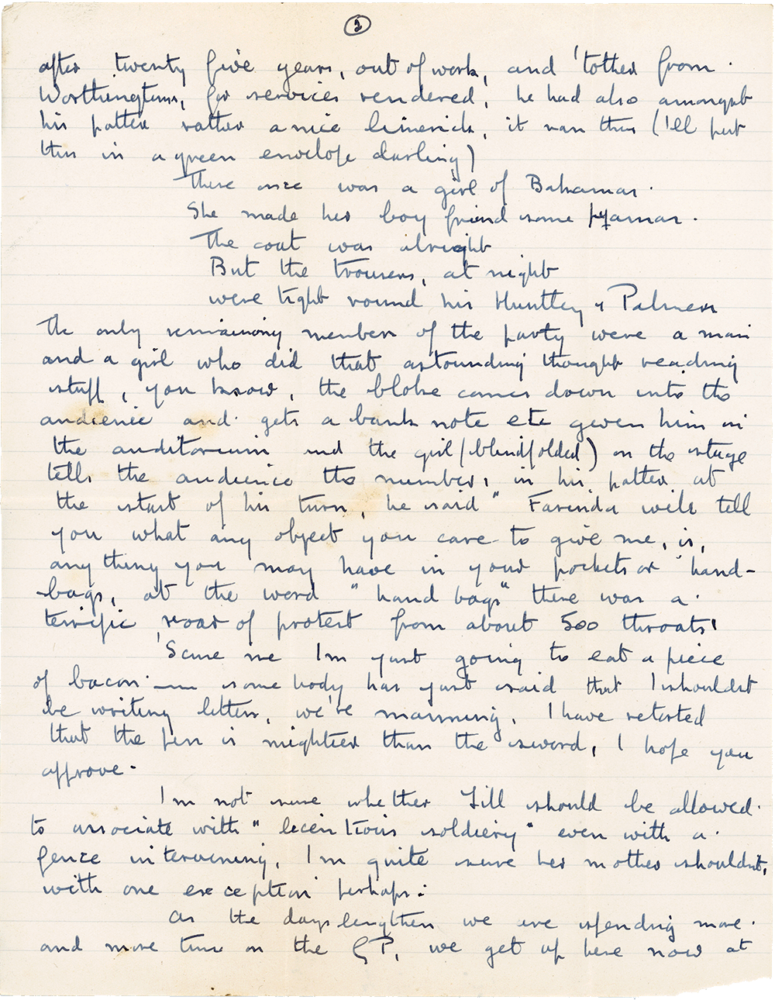 2
after twenty five years, out of work, and 'tother from
Worthingtons, for services rendered; he had also amongst
his patter rather a nice limerick, it ran thus (I'll put
this in a green envelope darling)
There once was a girl of Bahamas.
She made her boy friend some pyjamas.
The coat was alright
But the trousers, at night
were tight round his Huntley & Palmers
The only remaining members of the party were a man
and a girl who did that astounding thought reading
stuff, you know, the bloke comes down into the
audience and gets a bank note etc given him in
the auditorium and the girl (blindfolded) on the stage
tells the audience the number, in his patter at
the start of his turn, he said " Farinda will tell
you what any object you care to give me, is,
any thing you may have in your pockets or hand-
-bags, at the word "hand bags" there was a
terrific roar of protest from about 500 throats!
'Scuse me I'm just going to eat a piece
of bacon — some body has just said that I shouldnt
be writing letters, we're manning, I have retorted
that the pen is mightier than the sword, I hope you
approve.
I'm not sure whether Jill should be allowed
to associate with "licentious soldiery" even with a
fence intervening, I'm quite sure her mother shouldnt,
with one exception perhaps:
As the days lengthen we are spending more
and more time on the GP, we get up here now at